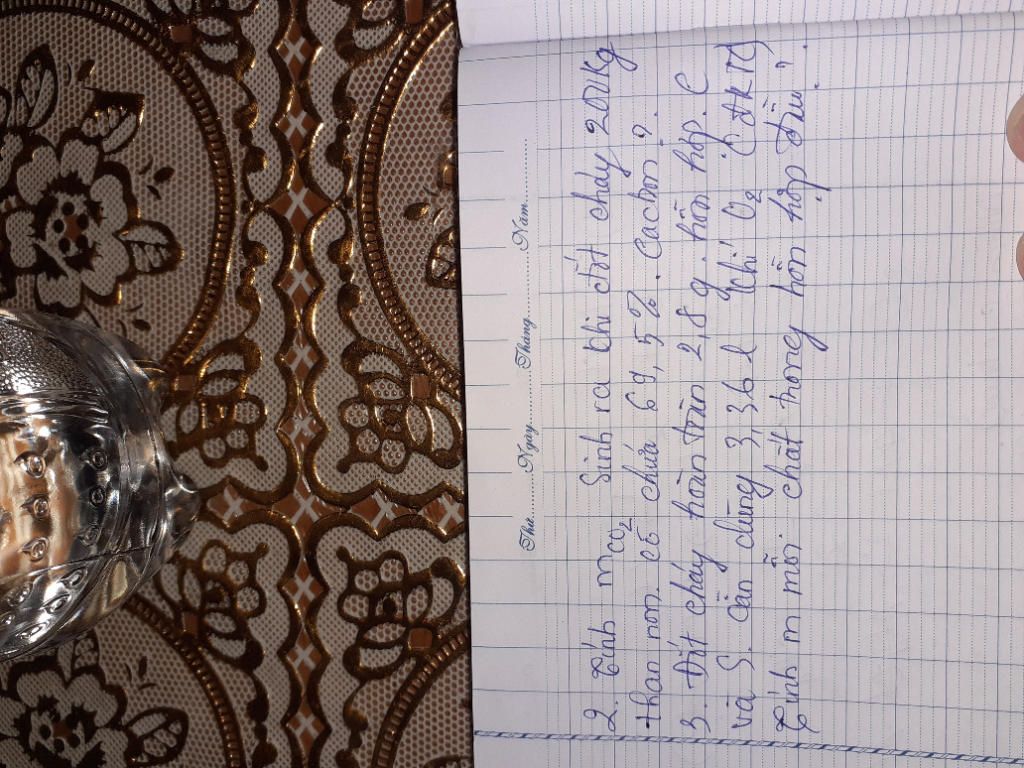 Thứ..........Ngày..............Tháng..............Năm...........
2. Tính mCO2 Sinh ra khi đốt cháy 200Kg
than non có chứa 69,5%. Cacbon?.
3. Đốt cháy hoàn toàn 2,8 g. hỗn hợp. C
và S. Cần dùng 3,36 l khí O2 (ĐKTC)
Tính m mỗi. chất trong hỗn hợp đầu?